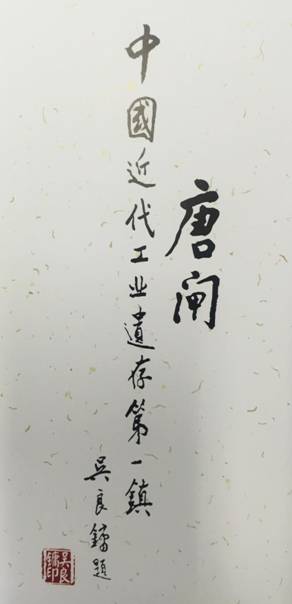 唐闸
中國近代工业遺存第一鎮
吴良鏞題
吴良鏞印